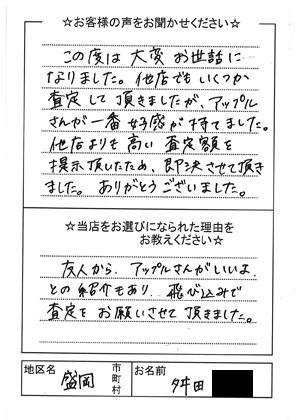 ☆お客様の声をお聞かせください☆
この度は大変お世話に
なりました。他店でもいくつか
査定して頂きましたが、アップル
さんが一番好感が持てました。
他店よりも高い査定額を
提示頂いたため、即決させて頂き
ました。ありがとうございました。
☆当店をお選びになられた理由を
お教えください☆
友人から、アップルさんがいいよ、
との紹介もあり、飛び込みで
査定をお願いさせて頂きました。
地区名 盛岡 市町村 お名前 舛田